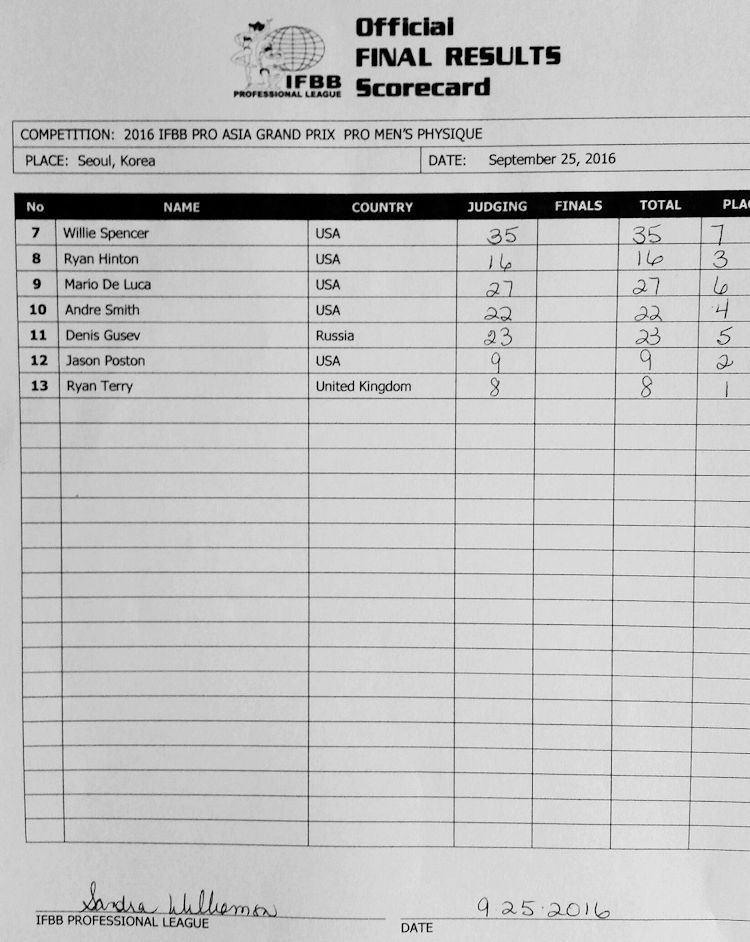 Official
FINAL RESULTS
IFBB
PROFESSIONAL LEAGUE
Scorecard
COMPETITION: 2016 IFBB PRO ASIA GRAND PRIX PRO MEN'S PHYSIQUE
PLACE: Seoul, Korea DATE: September 25, 2016
No NAME COUNTRY JUDGING FINALS TOTAL PLAC
7 Willie Spencer USA 35 35 7
8 Ryan Hinton USA 16 16 3
9 Mario De Luca USA 27 27 6
10 Andre Smith USA 22 22 4
11 Denis Gusev Russia 23 23 5
12 Jason Poston USA 9 9 2
13 Ryan Terry United Kingdom 8 8 1
Sandra Williamson 9.25.2016
IFBB PROFESSIONAL LEAGUE DATE